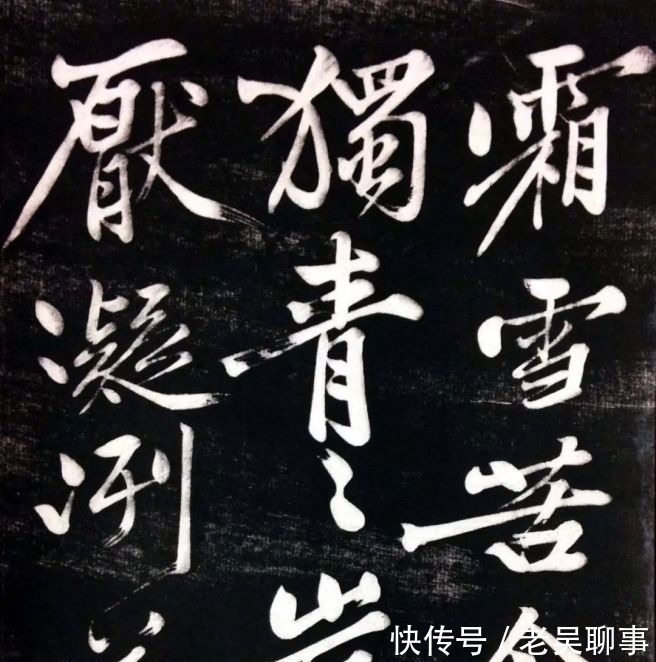 霜雪苦
獨青〻
厭凝冽
快传号 / 老吴聊事